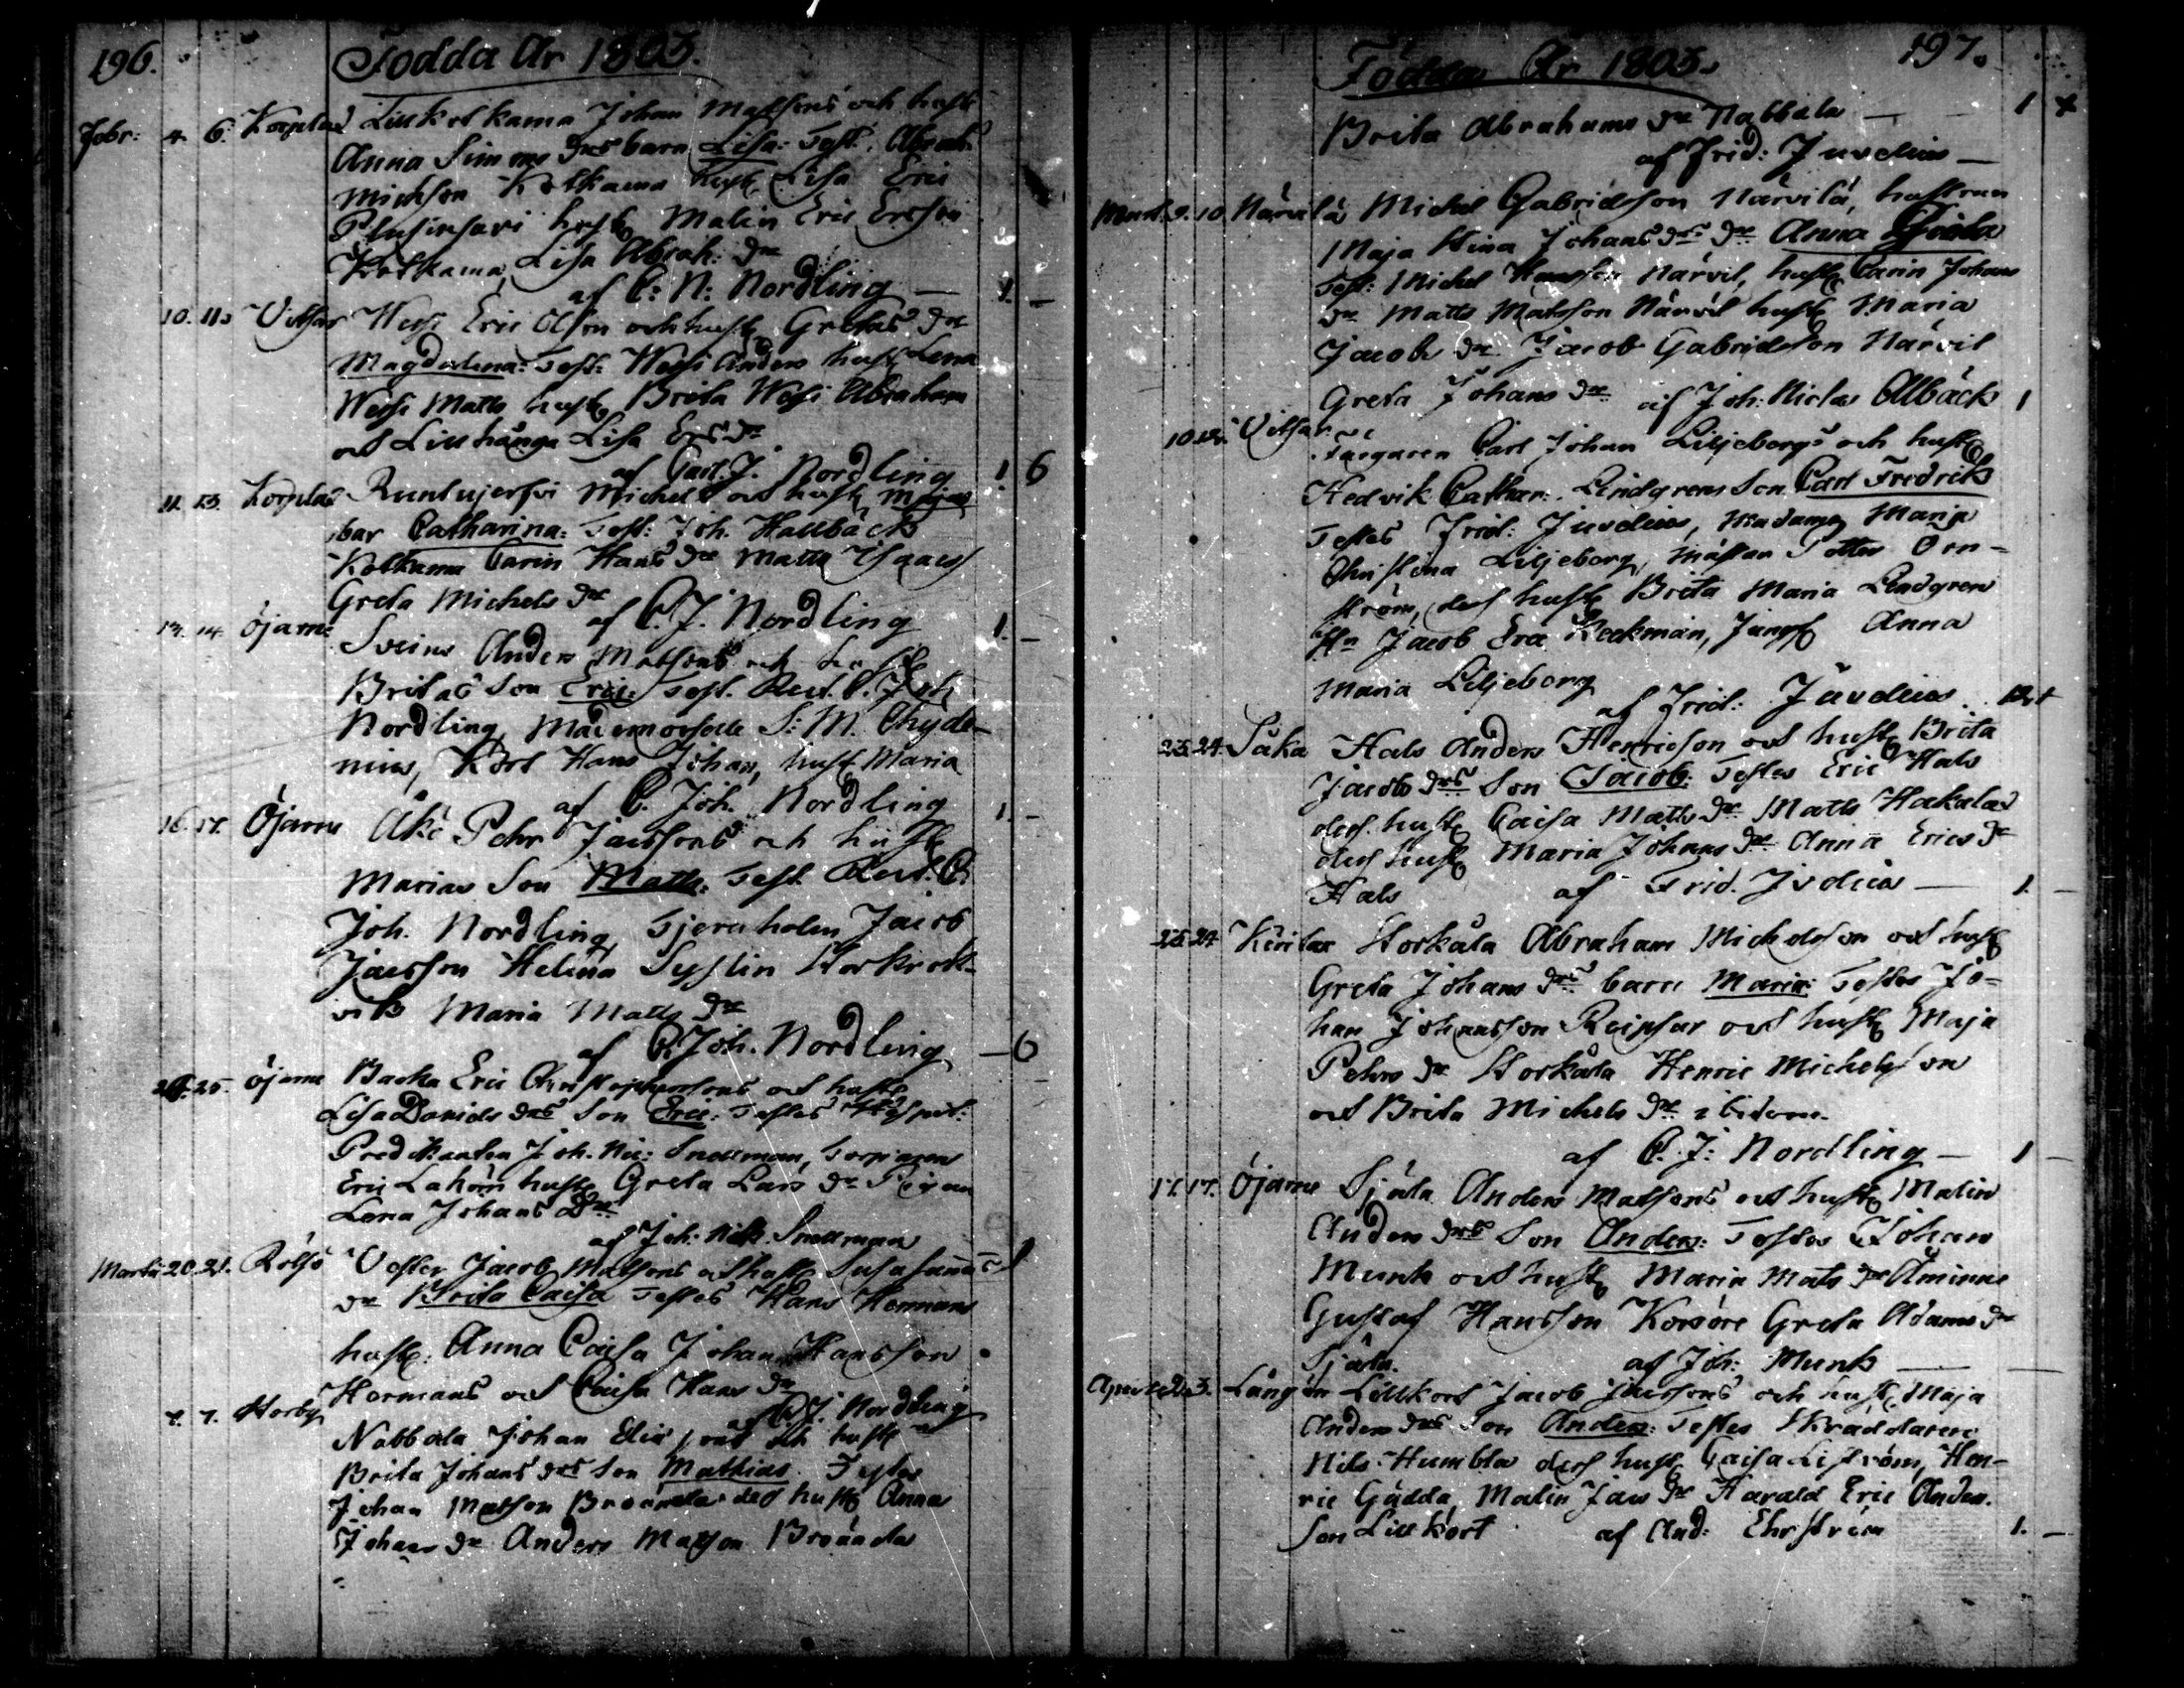 196.
Födda År 1803.
Febr: 4. 6. Korplax Lillkotkama Johan Matsons och hust
Anna Simons drs barn Lisa: Test. Abrah
Mickson Kotkama hust. Lisa Eric
hust Malin Eric Ersson
Kotkama, Lisa Abrah: dr
af C: N: Nordling — 1. —
10. 11. Vitsar Eric Olson och hust Gretas dr
Magdalena: Test: Anders hust Lena
Matts hust Brita Abraham
och Lillhånga Lisa Ers dr
af Carl. J. Nordling 1. 6
11. 13. Korplax Michels och hust Majas
bar Catharina: Test: Joh. Hallbäck
Kotkama Carin Hans dr Matts Isaacs
Greta Michels dr
af C. J. Nordling 1. —
13. 14. Öjarne Sveins Anders Matsons och hust
Britas Son Eric: Test. C. Joh
Nordling, Mademoiselle S: M. Chyde-
nius, Kört Hans Johan, hust Maria
af C. Joh. Nordling 1. —
16. 17. Öjarne Åke Pehr Jacssons och hust
Marias Son Matts: Test. C.
Joh. Nordling, Tjernholm Jacob
Jacsson Helena Storkrok-
vik Maria Matts dr
af C. Joh. Nordling — 6
24. 25. Öjarne Backa Eric Christophersons och hust
Lisa Daniels drs Son Eric: Testes
Predikanten Joh. Nic: Snellman,
Eric Lahöm hust Greta Lars dr
Lena Johans Dr
af Joh: Nils. Snellman
Martii 20. 21. Rölsö Vester Jacob Matsons och hust Susannas 1
dr Brita Caisa Testes Hans Hermans
hust. Anna Caisa Johan Hansson
Hermans och Caisa Hans dr
af C. J. Nordling
7. 7. Storby Nabbala Johan Elissons och hust
Brita Johans drs Son Mathias. Testes
Johan Matson Broända des hust Anna
Johans dr Anders Matson Broända
197.
Födda År 1803.
Brita Abrahams dr Nabbala — 1 +
af Frid: Juvelius —
Mart. 9. 10. Närvilä Michel Gabrielson Närvilä, hustrun
Maja Stina Johans drs dr Anna Greta
Test: Michel Hansson Närvil, hust Carin Johans
dr Matts Matsson Närvil hust Maria
Jacobs dr Jacob Gabrielson Närvil
Greta Johans dr af Joh: Niclas Allbäck 1
10. 12. Vitsar Färgaren Carl Johan Liljebergs och hust
Hedvik Cathar: Lindgrens Son Carl Fredrik
Testes Frid: Juvelius, Madame Maria
Christina Liljeberg, Mästar Petter Örn-
ström, des hust Brita Maria Lindgren
Hr Jacob Eric Keckman, Jungf Anna
Maria Liljeberg
af Frid: Juvelius
23. 24. Såka Hals Anders Henricson och hust Brita
Jacobs drs Son Jacob: Testes Eric Hals
des hust Caisa Matts dr Matts Hakalax
des hust Maria Johans dr Anna Erics dr
Hals af Frid. Jvelius — 1. —
25. 27. Storkåla Abraham Michelsson och hust
Greta Johans drs barn Maria: Testes Jo-
han Johansson Ripsar och hust Maja
Pehrs dr Storkåla Henric Michelsson
och Brita Michels dr ibidem.
af C. J: Nordling — 1 —
17. 17. Öjarne Själa Anders Matsons och hust Malin
Anders drs Son Anders: Testes Johan
Munk och hust Maria Mats dr Åminne
Gustaf Hansson Korsöre Greta Adams dr
Själa. af Joh: Munk —
Aprilis 2. 3. Långön Lillkort Jacob Jacssons och hust Maja
Anders drs Son Anders: Testes Skräddaren
Nils Humbla des hust Caisa Liström, Hen-
ric Gädda, Malin Jacs dr Harald Eric Anders-
son Lillkort af And: Ehrström 1. —